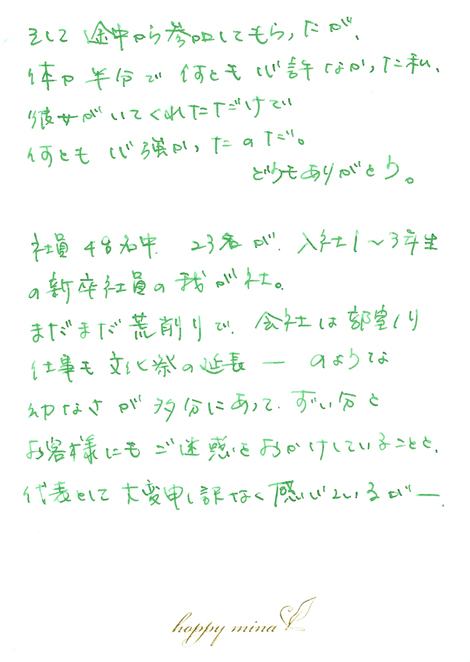 そして 途中から参加してもらったが、
体力 半分で 何とも 心許なかった私、
彼女が いてくれただけで
何とも 心強かったのだ。
どうもありがとう。
社員 48名中 23名が、入社1〜3年生
の新卒社員の我が社。
まだまだ 荒削りで、会社は部室ノリ
仕事も 文化祭の延長 ー のような
幼なさが 多分にあって、ずい分と
お客様にも ご迷惑をおかけしていることと、
代表として 大変申し訳なく感じているがー、
hoppy mina